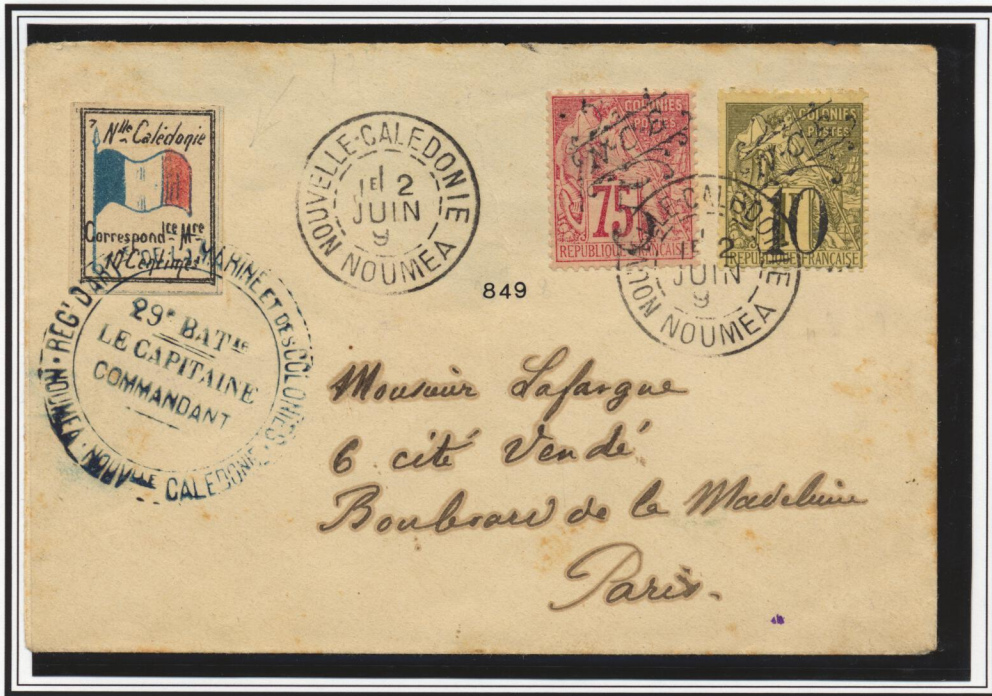 Nlle Calédogie
Correspondce Mre
10 Centimes
NOUVELLE-CALEDONIE
1E/ 2
JUIN
9
NOUMEA
COLONIES
POSTES
75
REPUBLIQUE FRANÇAISE
COLONIES
POSTES
10
REPUBLIQUE FRANÇAISE
CALEDONIE
1E 2
JUIN
9
NOUMEA
849
REGt D'ARt DE LA MARINE ET DES COLONIES
29e BATie
LE CAPITAINE
COMMANDANT
NOUMEA · NOUVELLE CALEDONIE
Monsieur Lafargue
6 cité Vendé
Boulevard de la Madeleine
Paris.